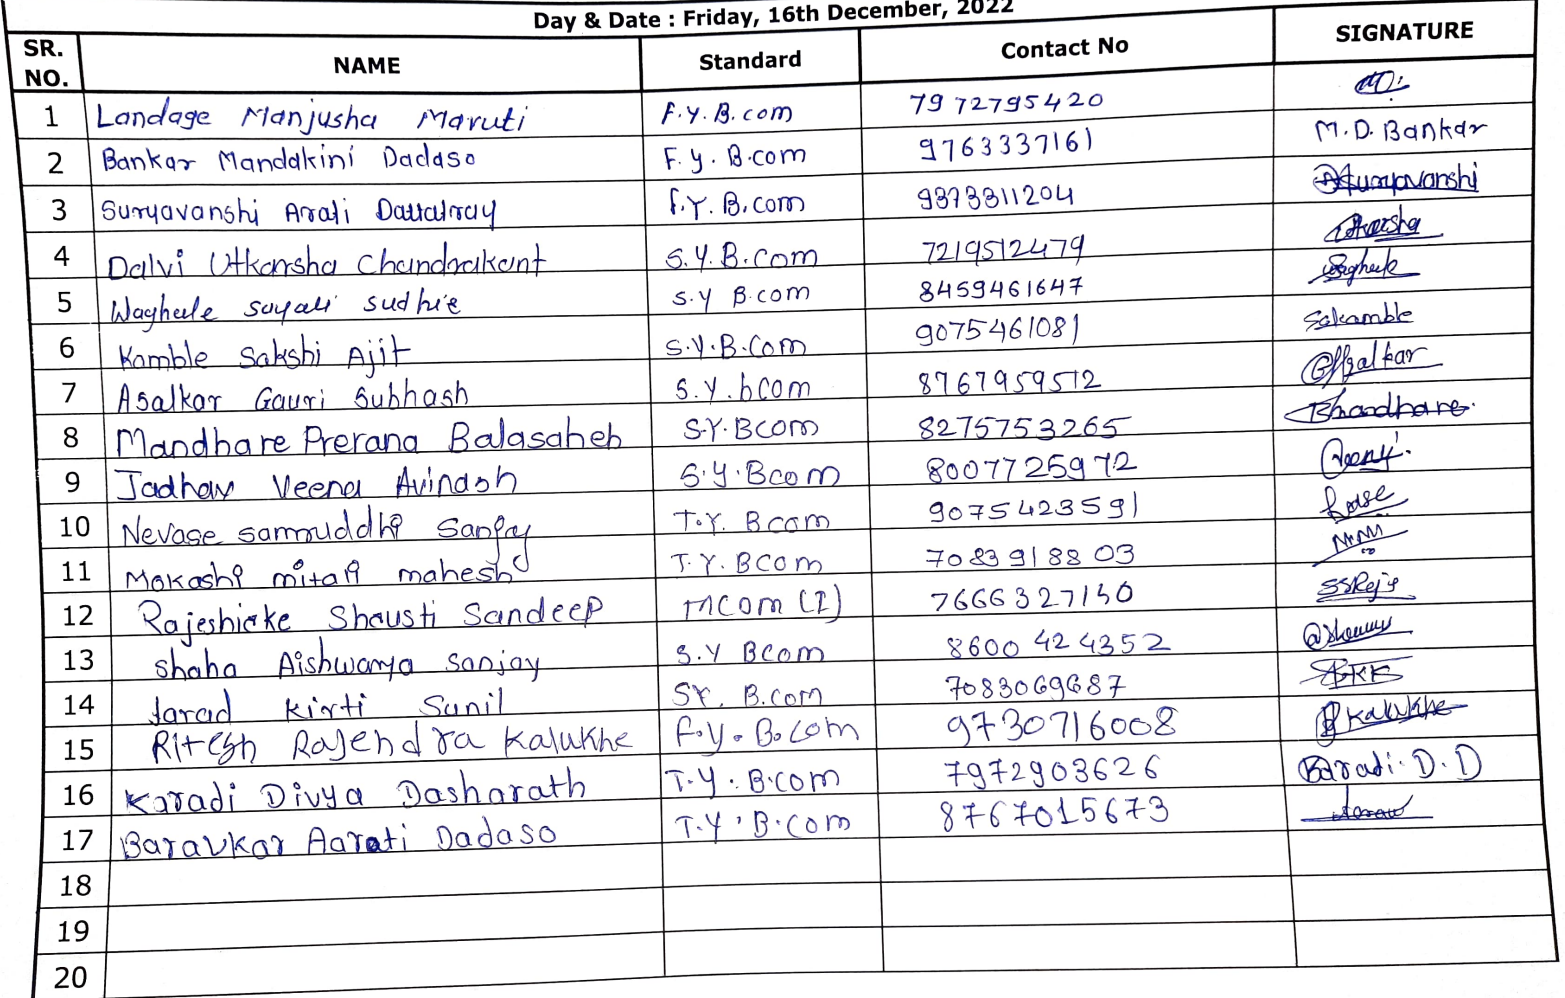 Day & Date : Friday, 16th December, 2022
SR. NO. NAME Standard Contact No SIGNATURE
1 Landage Manjusha Maruti F.Y.B.com 7972795420
2 Bankar Mandakini Dadaso F.y.B.com 9763337161 M.D.Bankar
3 Suryavanshi Arati Dattatray F.Y.B.com 9373311204 Asuryavanshi
4 Dalvi Utkarsha Chandrakant S.Y.B.com 7219512479
5 Waghule sayali sudhir S.Y B.com 8459461647
6 Kamble Sakshi Ajit S.Y.B.Com 9075461081 Sakamble
7 Asalkar Gauri Subhash S.Y.bcom 8767959512
8 Mandhare Prerana Balasaheb S.Y.Bcom 8275753265
9 Jadhav Veena Avinash S.y.Bcom 8007725972
10 Nevase samruddhi Sanjay T.Y. Bcom 9075423591
11 Mokashi mitali mahesh T.Y.BCom 7083918803
12 Rajeshirke Shrusti Sandeep MCom (I) 7666327130
13 shaha Aishwarya sanjay S.Y Bcom 8600424352
14 Jarad kirti Sunil SY. B.com 7083069687
15 Ritesh Rajendra Kalukhe F.y.B.com 9730716008 Kalukhe
16 Karadi Divya Dasharath T.Y.B.com 7972903626 Karadi.D.D
17 Baravkar Aarati Dadaso T.Y.B.com 8767015673
18
19
20